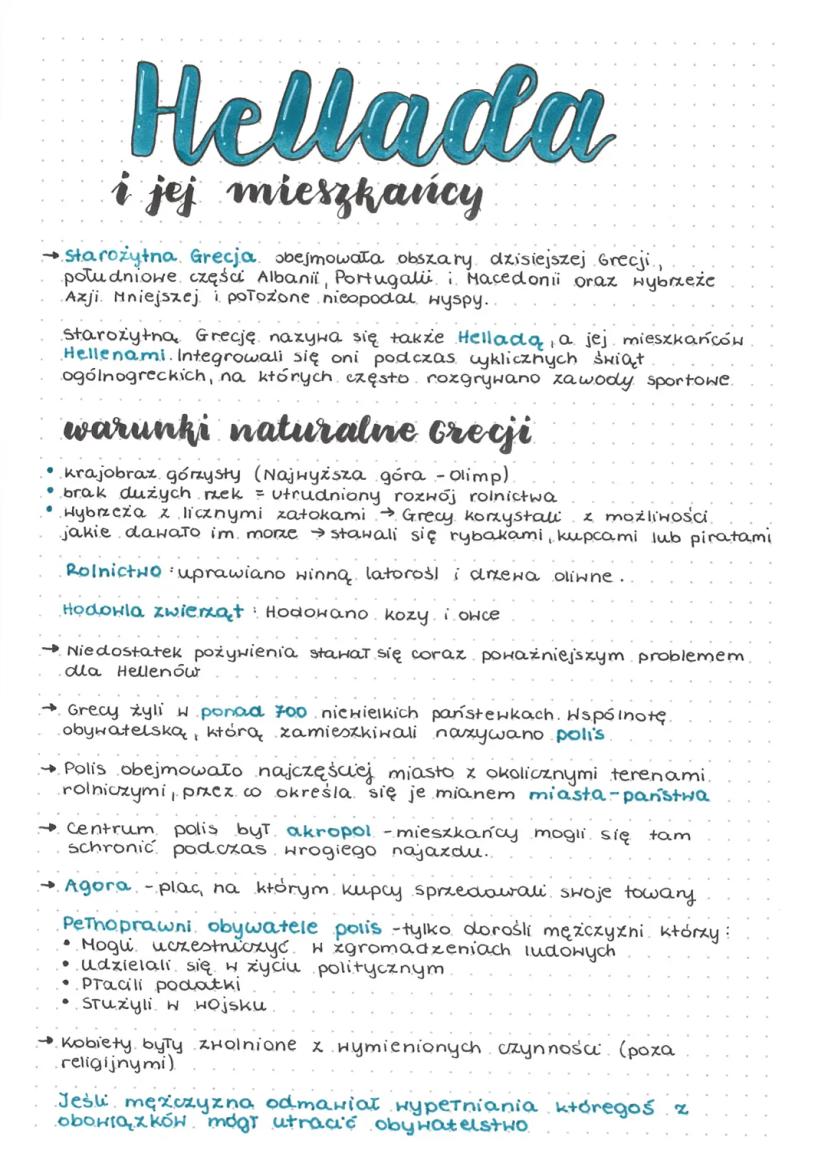 Hellada
i jej mieszkańcy
→ Starożytna Grecja obejmowała obszary dzisiejszej Grecji,
południowe części Albanii, Portugalii i Macedonii oraz wybrzeże
Azji Mniejszej i położone nieopodal wyspy.
Starożytną Grecję nazywa się także Helladą, a jej mieszkańców
Hellenami. Integrowali się oni podczas cyklicznych świąt
ogólnogreckich, na których często rozgrywano zawody sportowe.
warunki naturalne Grecji
• krajobraz górzysty (Najwyższa góra - Olimp)
• brak dużych rzek = utrudniony rozwój rolnictwa
• wybrzeża z licznymi zatokami → Grecy korzystali z możliwości
jakie dawało im morze → stawali się rybakami, kupcami lub piratami
Rolnictwo : uprawiano winną latorośl i drzewa oliwne.
Hodowla zwierząt : Hodowano kozy i owce
→ Niedostatek pożywienia stawał się coraz poważniejszym problemem
dla Hellenów
→ Grecy żyli w ponad 700 niewielkich państewkach. Wspólnotę
obywatelską, którą zamieszkiwali nazywano polis
→ Polis obejmowało najczęściej miasto z okolicznymi terenami
rolniczymi, przez co określa się je mianem miasta-państwa
→ Centrum polis był akropol - mieszkańcy mogli się tam
schronić podczas wrogiego najazdu.
→ Agora - plac, na którym kupcy sprzedawali swoje towary
Pełnoprawni obywatele polis - tylko dorośli mężczyźni którzy:
• Mogli uczestniczyć w zgromadzeniach ludowych
• udzielali się w życiu politycznym
• Płacili podatki
• Służyli w wojsku
→ Kobiety były zwolnione z wymienionych czynności (poza
religijnymi)
Jeśli mężczyzna odmawiał wypełniania któregoś z
obowiązków mógł utracić obywatelstwo